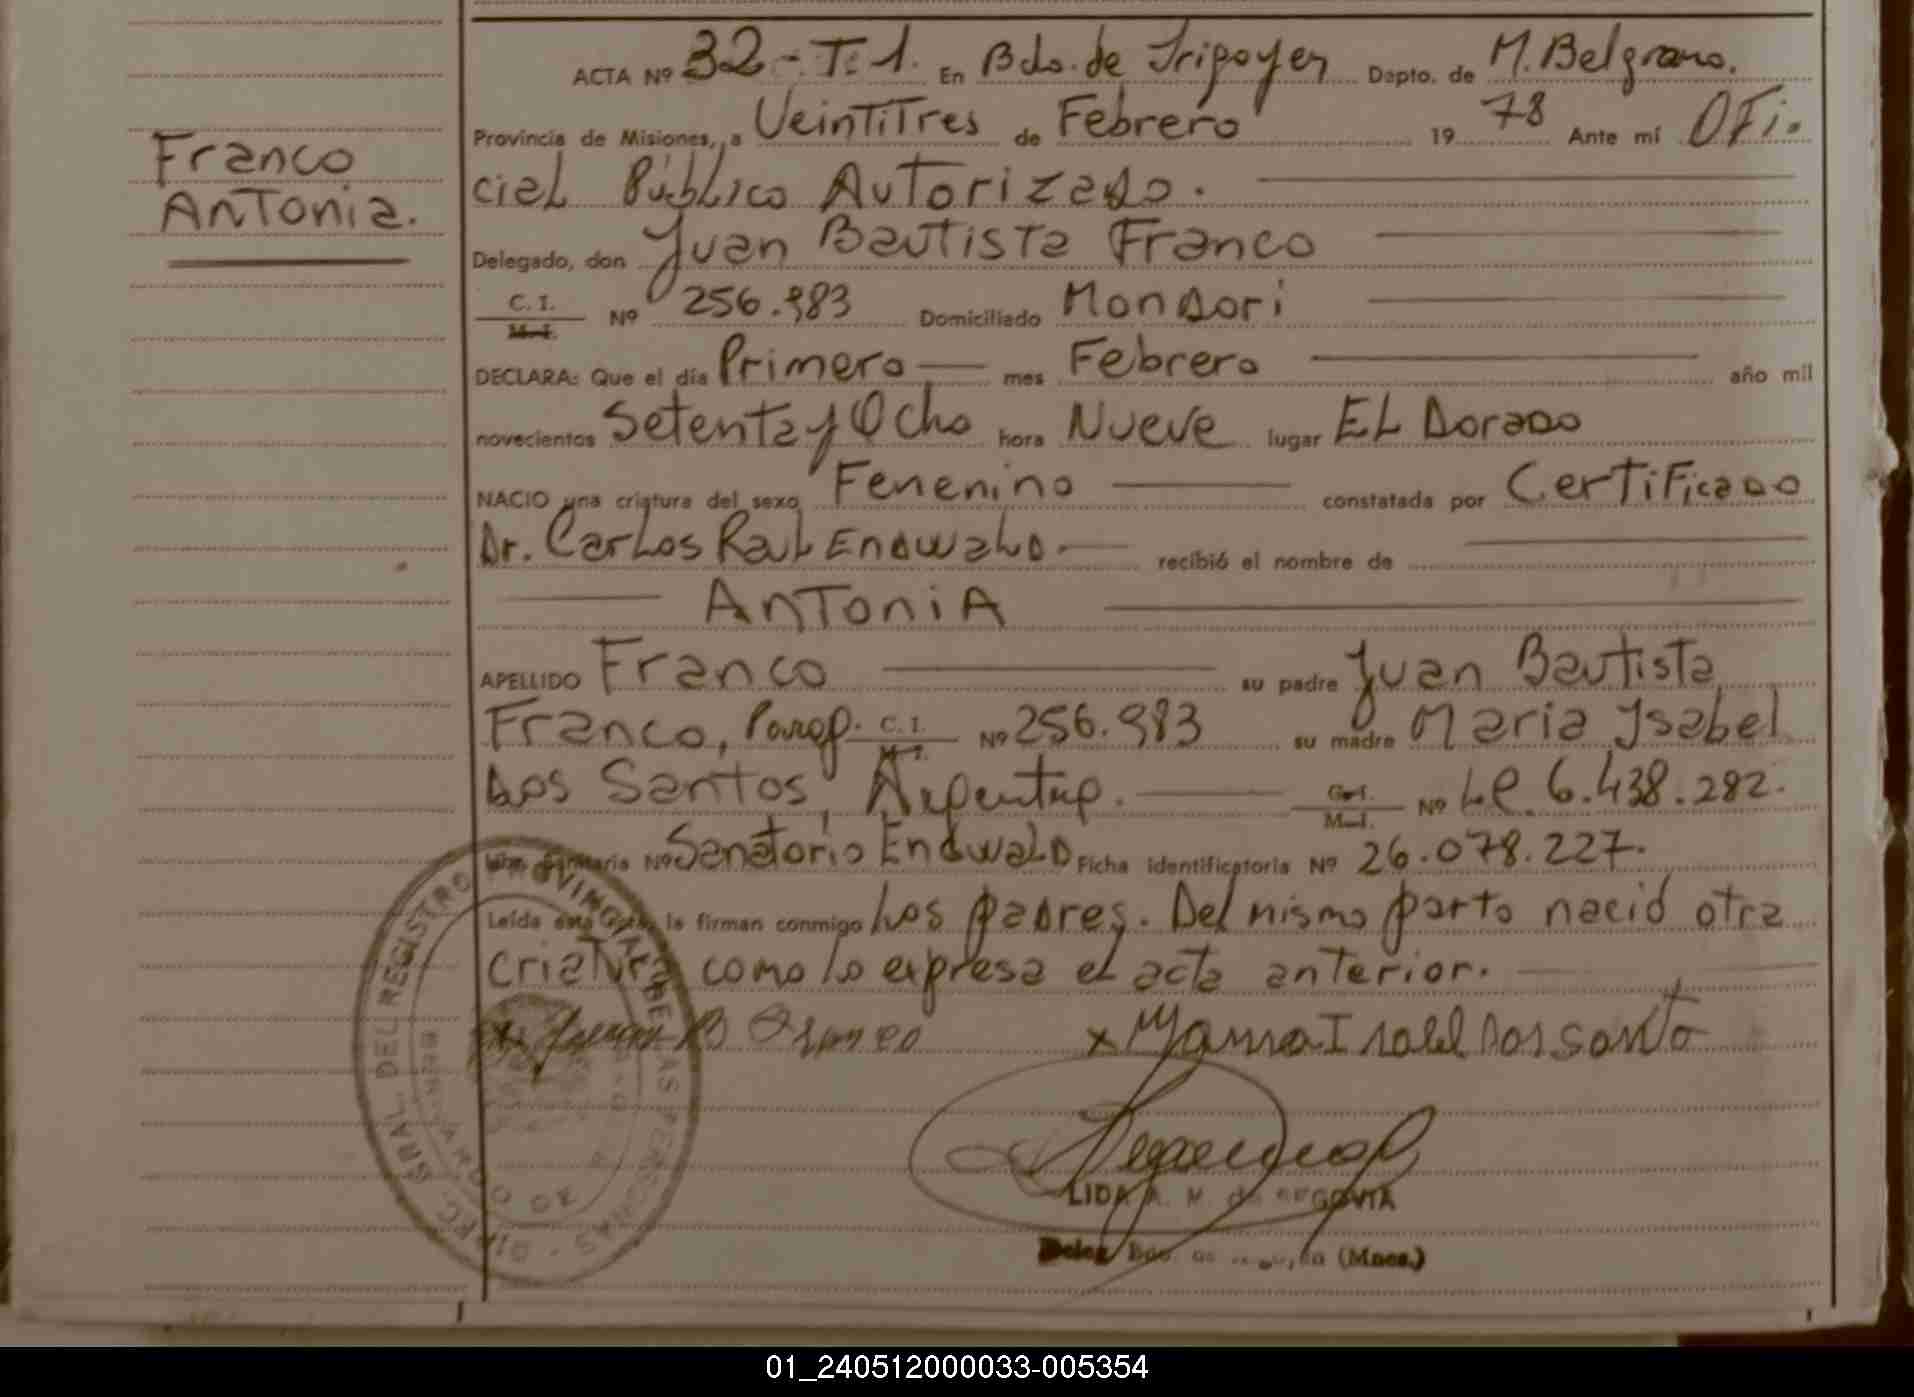 ACTA Nº 32 - T. 1. En Bdo. de Irigoyen Depto. de M. Belgrano.
Provincia de Misiones, a Veintitres de Febrero 19 78 Ante mí Ofi.
Franco
cial Público Autorizado.
Antonia.
Delegado, don Juan Bautista Franco
C. I. M. I. Nº 256.983 Domiciliado Mondori
DECLARA: Que el día Primero mes Febrero año mil
novecientos Setenta y Ocho hora Nueve lugar El Dorado
NACIO una criatura del sexo Fenenino constatada por Certificado
Dr. Carlos Raul Endwald. recibió el nombre de
Antonia
APELLIDO Franco su padre Juan Bautista
Franco, Parag. C. I. M. I. Nº 256.983 su madre Maria Ysabel
Dos Santos, Argentina. C. I. M. I. Nº L.C. 6.438.282.
Nº Sanatorio Endwald Ficha identificatoria Nº 26.078.227.
Leída esta acta, la firman conmigo Los padres. Del mismo parto nació otra
criatura como lo expresa el acta anterior.
x Juan B Franco x Maria Isabel Dos Santo
DIREC. GRAL. DEL REGISTRO PROVINCIAL DE LAS PERSONAS
LIDA A. M. de SEGOVIA
Deleg. Bdo. de (Mnes.)
01_240512000033-005354